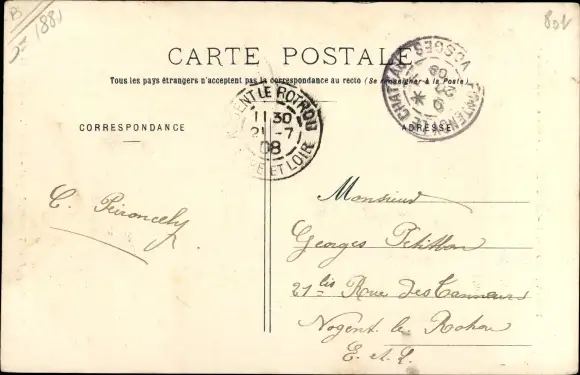 B
1880
801
CARTE POSTALE
Tous les pays étrangers n'acceptent pas la correspondance au recto (Se renseigner à la Poste)
CORRESPONDANCE
ADRESSE
NOGENT LE ROTROU
11 30
21 -7
08
EURE ET LOIRE
FONTENOY LE CHATEAU
VOSGES
20
08
C. Peironcely
Monsieur
Georges Petillon
21 bis Rue des Tanneurs
Nogent le Rotrou
E. et L.